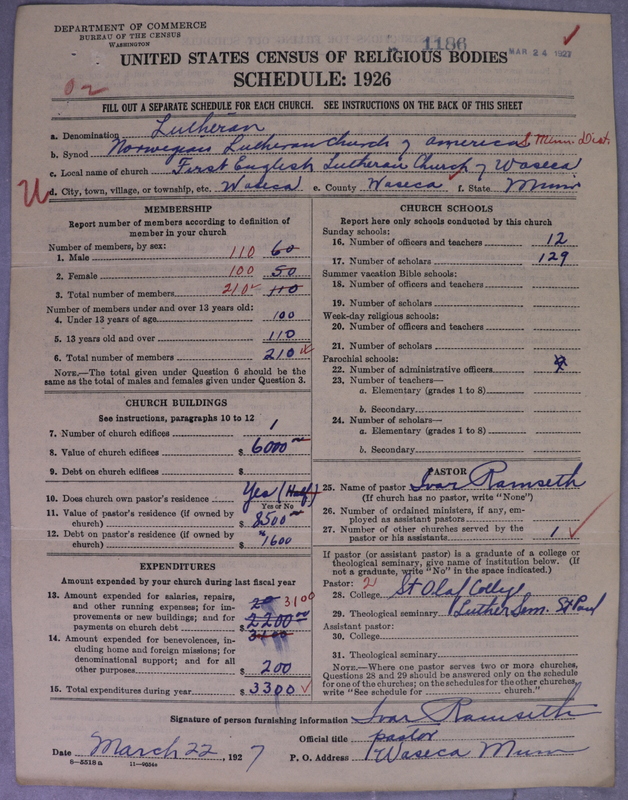 DEPARTMENT OF COMMERCE
BUREAU OF THE CENSUS
WASHINGTON
1186
MAR 24 1927
UNITED STATES CENSUS OF RELIGIOUS BODIES
SCHEDULE: 1926
FILL OUT A SEPARATE SCHEDULE FOR EACH CHURCH. SEE INSTRUCTIONS ON THE BACK OF THIS SHEET
a. Denomination Lutheran
b. Synod Norwegian Lutheran Church of America S. Minn. Dist.
c. Local name of church First English Lutheran Church of Waseca
d. City, town, village, or township, etc. Waseca e. County Waseca f. State Minn
MEMBERSHIP
Report number of members according to definition of member in your church
Number of members, by sex:
1. Male 110 60
2. Female 100 50
3. Total number of members 210 110
Number of members under and over 13 years old:
4. Under 13 years of age 100
5. 13 years old and over 110
6. Total number of members 210
NOTE.—The total given under Question 6 should be the same as the total of males and females given under Question 3.
CHURCH BUILDINGS
See instructions, paragraphs 10 to 12
7. Number of church edifices 1
8. Value of church edifices $ 6000 00
9. Debt on church edifices $
10. Does church own pastor's residence Yes (Half)
Yes or No
11. Value of pastor's residence (if owned by church) $ 8500 00
12. Debt on pastor's residence (if owned by church) $ 1600
EXPENDITURES
Amount expended by your church during last fiscal year
13. Amount expended for salaries, repairs, and other running expenses; for improvements or new buildings; and for payments on church debt $ 2200 00 3100
14. Amount expended for benevolences, including home and foreign missions; for denominational support; and for all other purposes $ 3100 200
15. Total expenditures during year $ 3300
CHURCH SCHOOLS
Report here only schools conducted by this church
Sunday schools:
16. Number of officers and teachers 12
17. Number of scholars 129
Summer vacation Bible schools:
18. Number of officers and teachers
19. Number of scholars
Week-day religious schools:
20. Number of officers and teachers
21. Number of scholars
Parochial schools:
22. Number of administrative officers
23. Number of teachers—
a. Elementary (grades 1 to 8)
b. Secondary
24. Number of scholars—
a. Elementary (grades 1 to 8)
b. Secondary
PASTOR
25. Name of pastor Ivar Ramseth
(If church has no pastor, write "None")
26. Number of ordained ministers, if any, employed as assistant pastors
27. Number of other churches served by the pastor or his assistants 1
If pastor (or assistant pastor) is a graduate of a college or theological seminary, give name of institution below. (If not a graduate, write "No" in the space indicated.)
Pastor: 2
28. College St Olaf College
29. Theological seminary Luther Sem. St Paul
Assistant pastor:
30. College
31. Theological seminary
NOTE.—Where one pastor serves two or more churches, Questions 28 and 29 should be answered only on the schedule for one of the churches; on the schedules for the other churches, write "See schedule for church."
Signature of person furnishing information Ivar Ramseth
Official title pastor
Date March 22, 1927 P. O. Address Waseca Minn
8—5518a 11—9056a